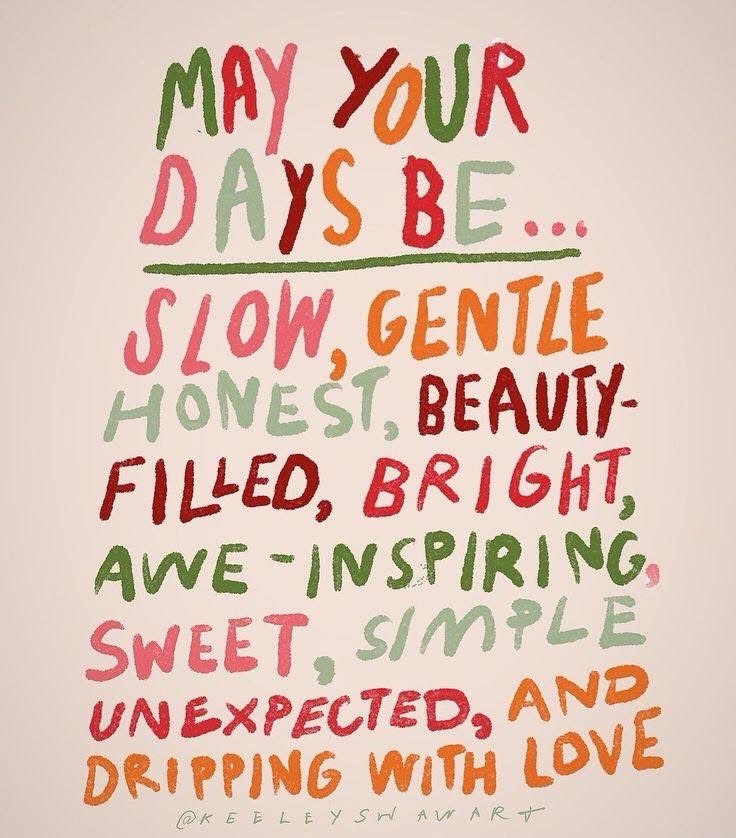 MAY YOUR
DAYS BE...
SLOW, GENTLE
HONEST, BEAUTY-
FILLED, BRIGHT,
AWE-INSPIRING,
SWEET, SIMPLE
UNEXPECTED, AND
DRIPPING WITH LOVE
@KEELEYSHAWART